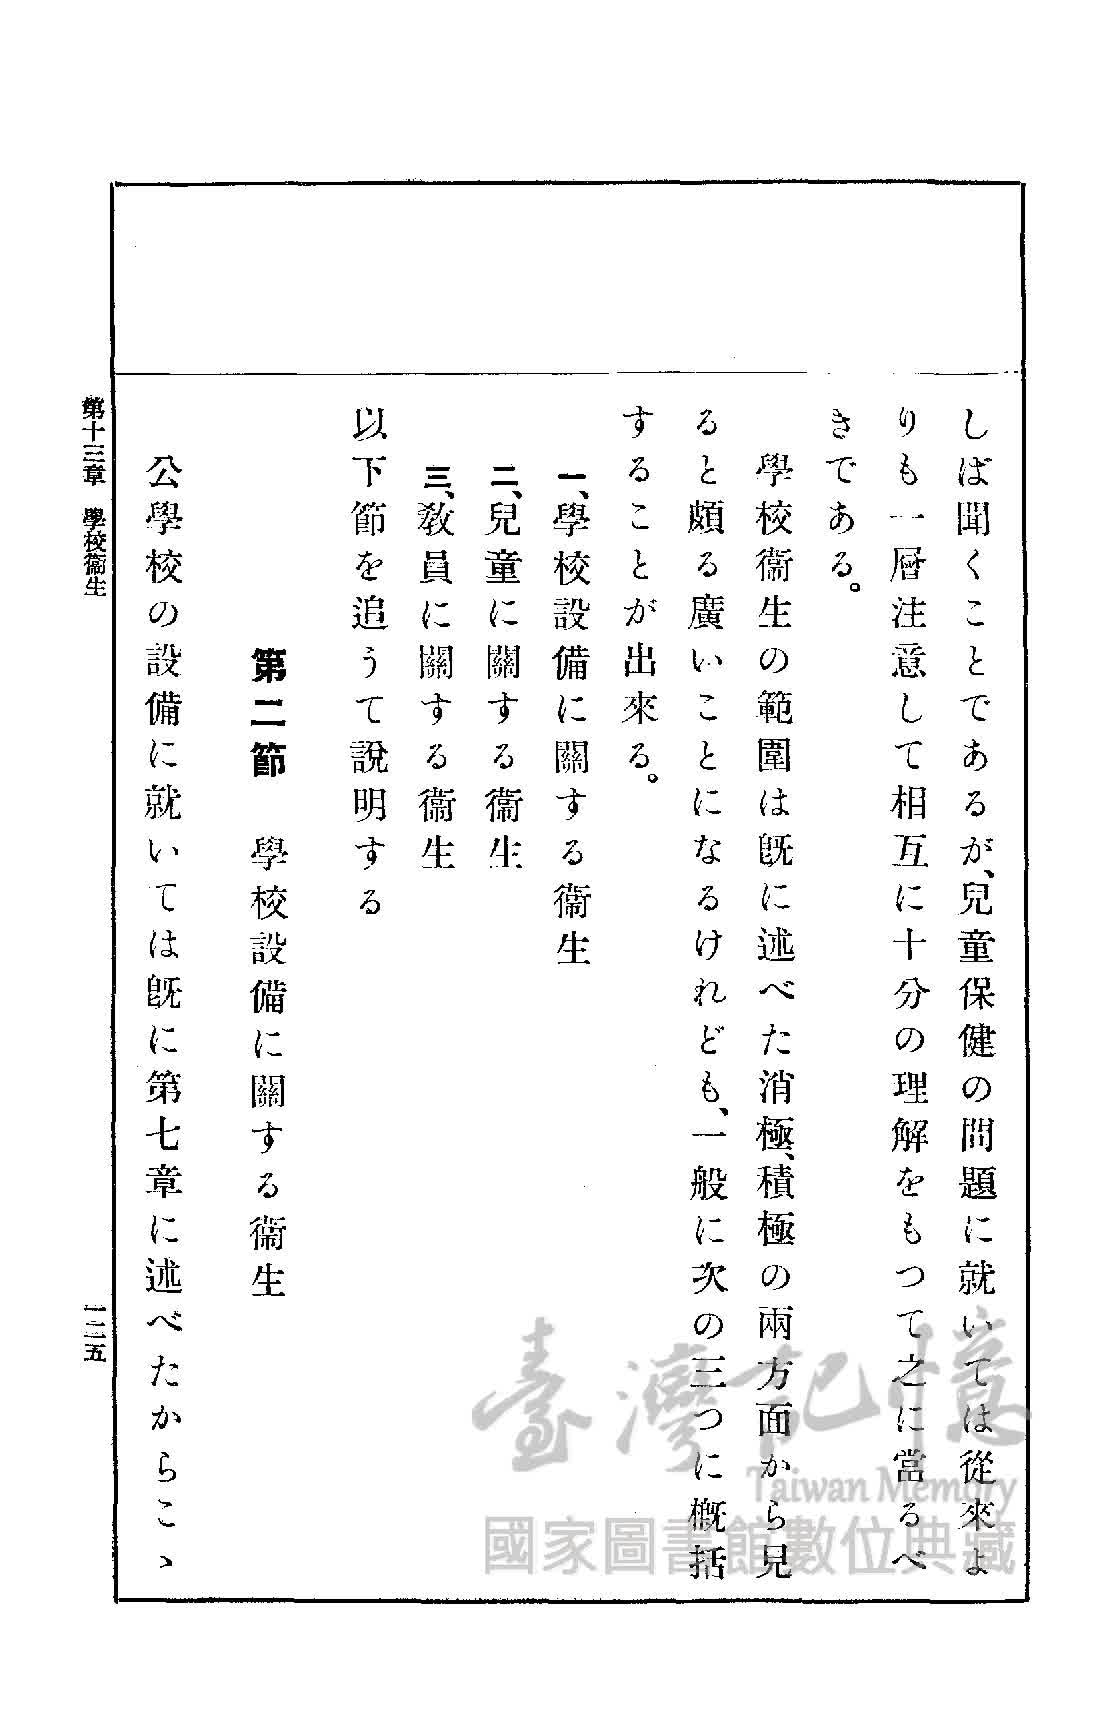 しば聞くことであるが、兒童保健の問題に就いては從來よ
りも一層注意して相互に十分の理解をもつて之に當るべ
きである。
學校衞生の範圍は旣に述べた消極、積極の兩方面から見
ると頗る廣いことになるけれども、一般に次の三つに概括
することが出來る。
一、學校設備に關する衞生
二、兒童に關する衞生
三、敎員に關する衞生
以下節を追うて說明する
第二節　學校設備に關する衞生
公學校の設備に就いては旣に第七章に述べたからこゝ
第十三章　學校衞生
一二五
臺灣記憶
Taiwan Memory
國家圖書館數位典藏